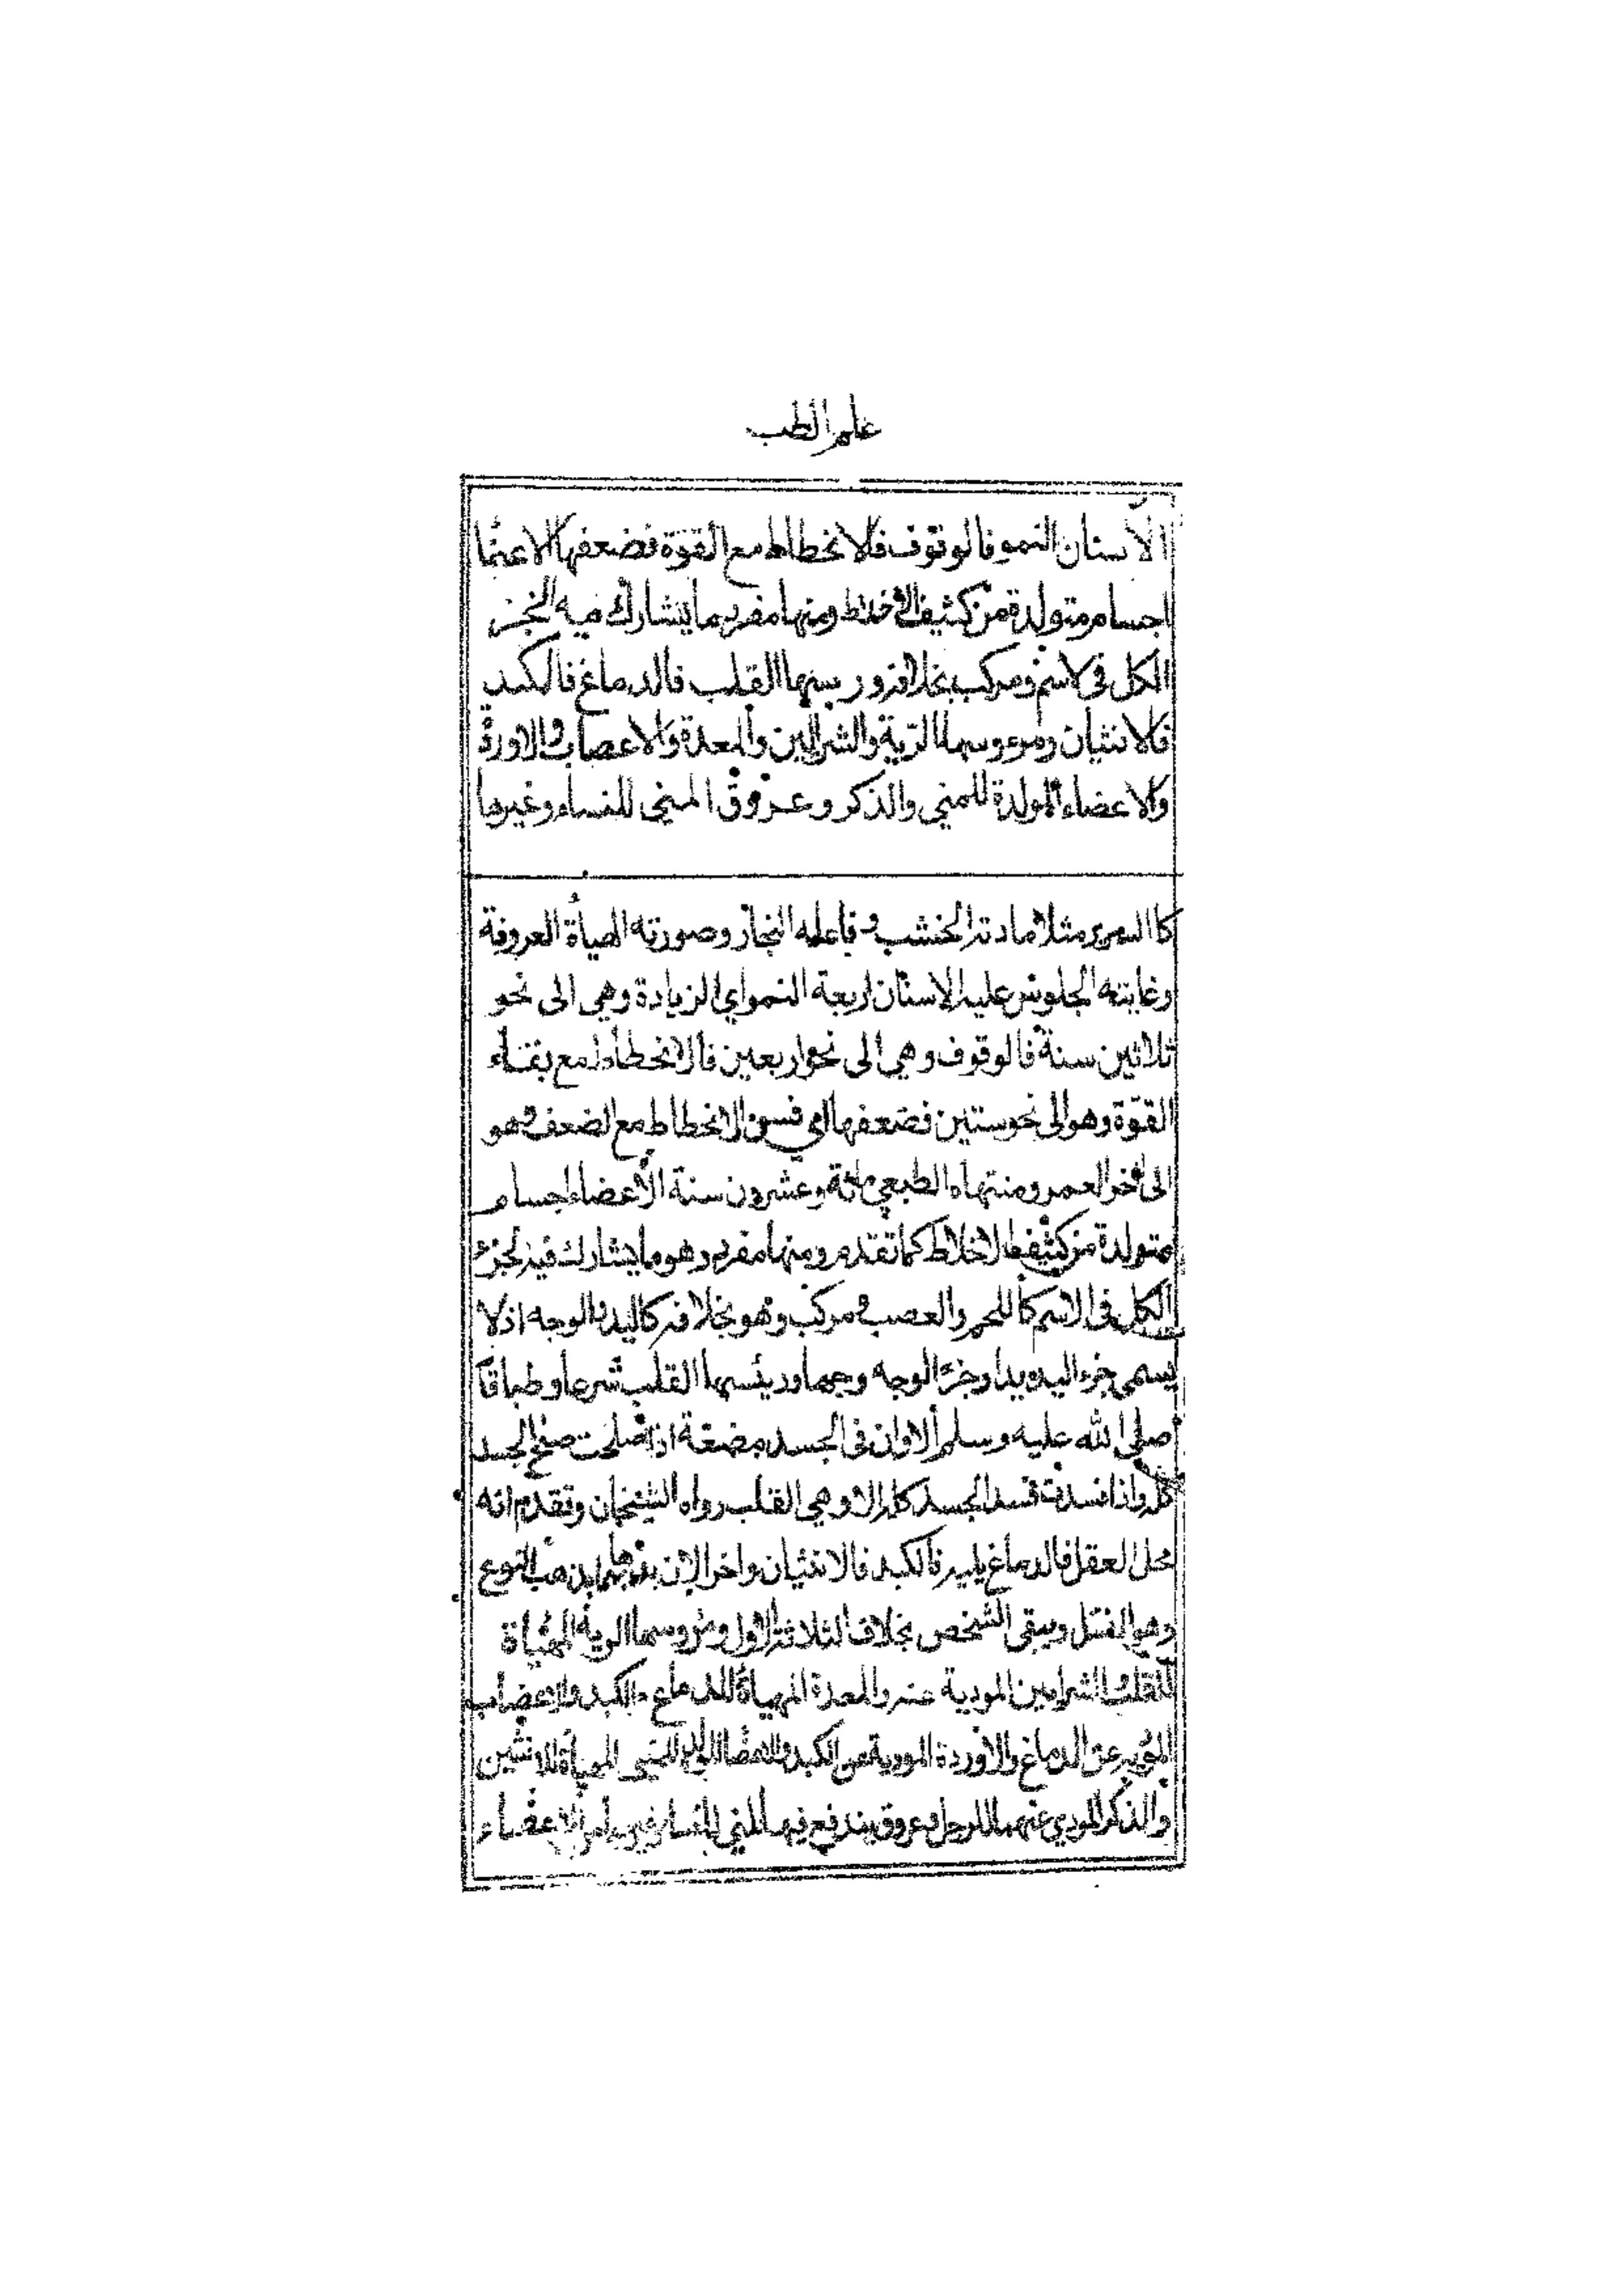 علم الطب
الأسنان النمو فالوقوف فالانحطاط مع القوة فضعفها الاعضا
اجسام متولدة من كثيف الأخلاط ومنها مفرد ما يشارك فيه الجزء
الكل فى الاسم ومركب بخلافه ورييسها القلب فالدماغ فالكبد
فالانثيان ومرءوسها الرية والشرايين والمعدة والاعصاب والاوردة
والاعضاء المولدة للمني والذكر وعروق المني للنساء وغيرها
كالسرير مثلا مادته الخشب وفاعله النجار وصورته الهيأة المعروفة
وغايته الجلوس عليه الاسنان اربعة النمو اي الزيادة وهي الى نحو
ثلاثين سنة فالوقوف وهي الى نحو اربعين فالانحطاط مع بقاء
القوة وهو الى نحو ستين فضعفها اي فسن الانحطاط مع الضعف وهو
الى آخر العمر ومنتهاه الطبيعي مائة وعشرون سنة الأعضاء اجسام
متولدة من كثيف الاخلاط كما تقدم ومنها مفرد وهو ما يشارك فيه الجزء
الكل فى الاسم كاللحم والعصب ومركب وهو بخلافه كاليد والوجه اذ لا
يسمى جزء اليد يدا وجزء الوجه وجها ورئيسها القلب شرعا وطبا قال
صلى الله عليه وسلم ألا وان فى الجسد مضغة اذا صلحت صلح الجسد
كله واذا فسدت فسد الجسد كله الا وهي القلب رواه الشيخان وتقدم انه
محل العقل فالدماغ يليه فالكبد فالانثيان واخرا لان بذهابهما يذهب النوع
وهو النسل ويبقى الشخص بخلاف الثلاثة الاول ومرءوسها الرية المهيأة
للقلب والشرايين المودية عنه والمعدة المهيأة للدماغ والكبد والاعصاب
المؤدية عن الدماغ والاوردة المودية عن الكبد والاعضاء المولدة للمني المهيأة للانثيين
والذكر المودي عنهما للرجل وعروق يندفع فيها المني للنساء وغيرها من الاعضاء